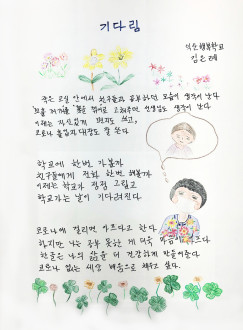 기다림
익산행복학교
김은례
작은 교실 안에서 친구들과 공부하던 모습이 생각이 난다
뜨며 주시던 선생님도 생각이 난다
이제는 자신있게 편지도 쓰고,
코로나 즐김지 대장도 잘 쓴다
학교에 한번 가볼까
친구들에게 전화 한번 해볼까
이제는 학교가 점점 그립고
학교가는 날이 기다려진다
코로나에 걸리면 아프다고 한다
하지만 나는 공부 못한 게 더욱 마음이 아프다
한글은 나의 삶을 더 건강하게 만들어준다
코로나 없는 세상 배움으로 채우고 싶다